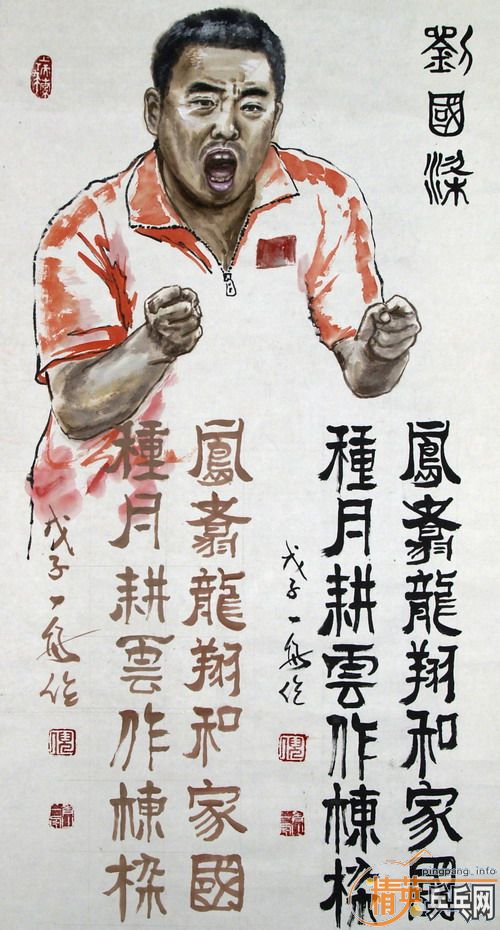 劉國梁
鳳翥龍翔和家國
種月耕雲作棟梁
戊子一
鳳翥龍翔和家國
種月耕雲作棟梁
戊子一
pingpang.info
精英乒乓网